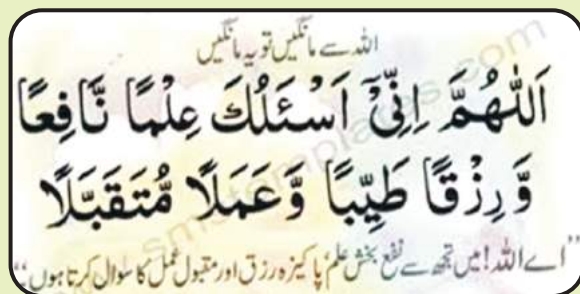 اللہ سے مانگیں تو یہ مانگیں
اَللّٰهُمَّ اِنِّیْٓ اَسْئَلُكَ عِلْمًا نَّافِعًا
وَّ رِزْقًا طَیِّبًا وَّ عَمَلًا مُّتَقَبَّلًا
’’اے اللہ! میں تجھ سے نفع بخش علم، پاکیزہ رزق اور مقبول عمل کا سوال کرتا ہوں۔‘‘